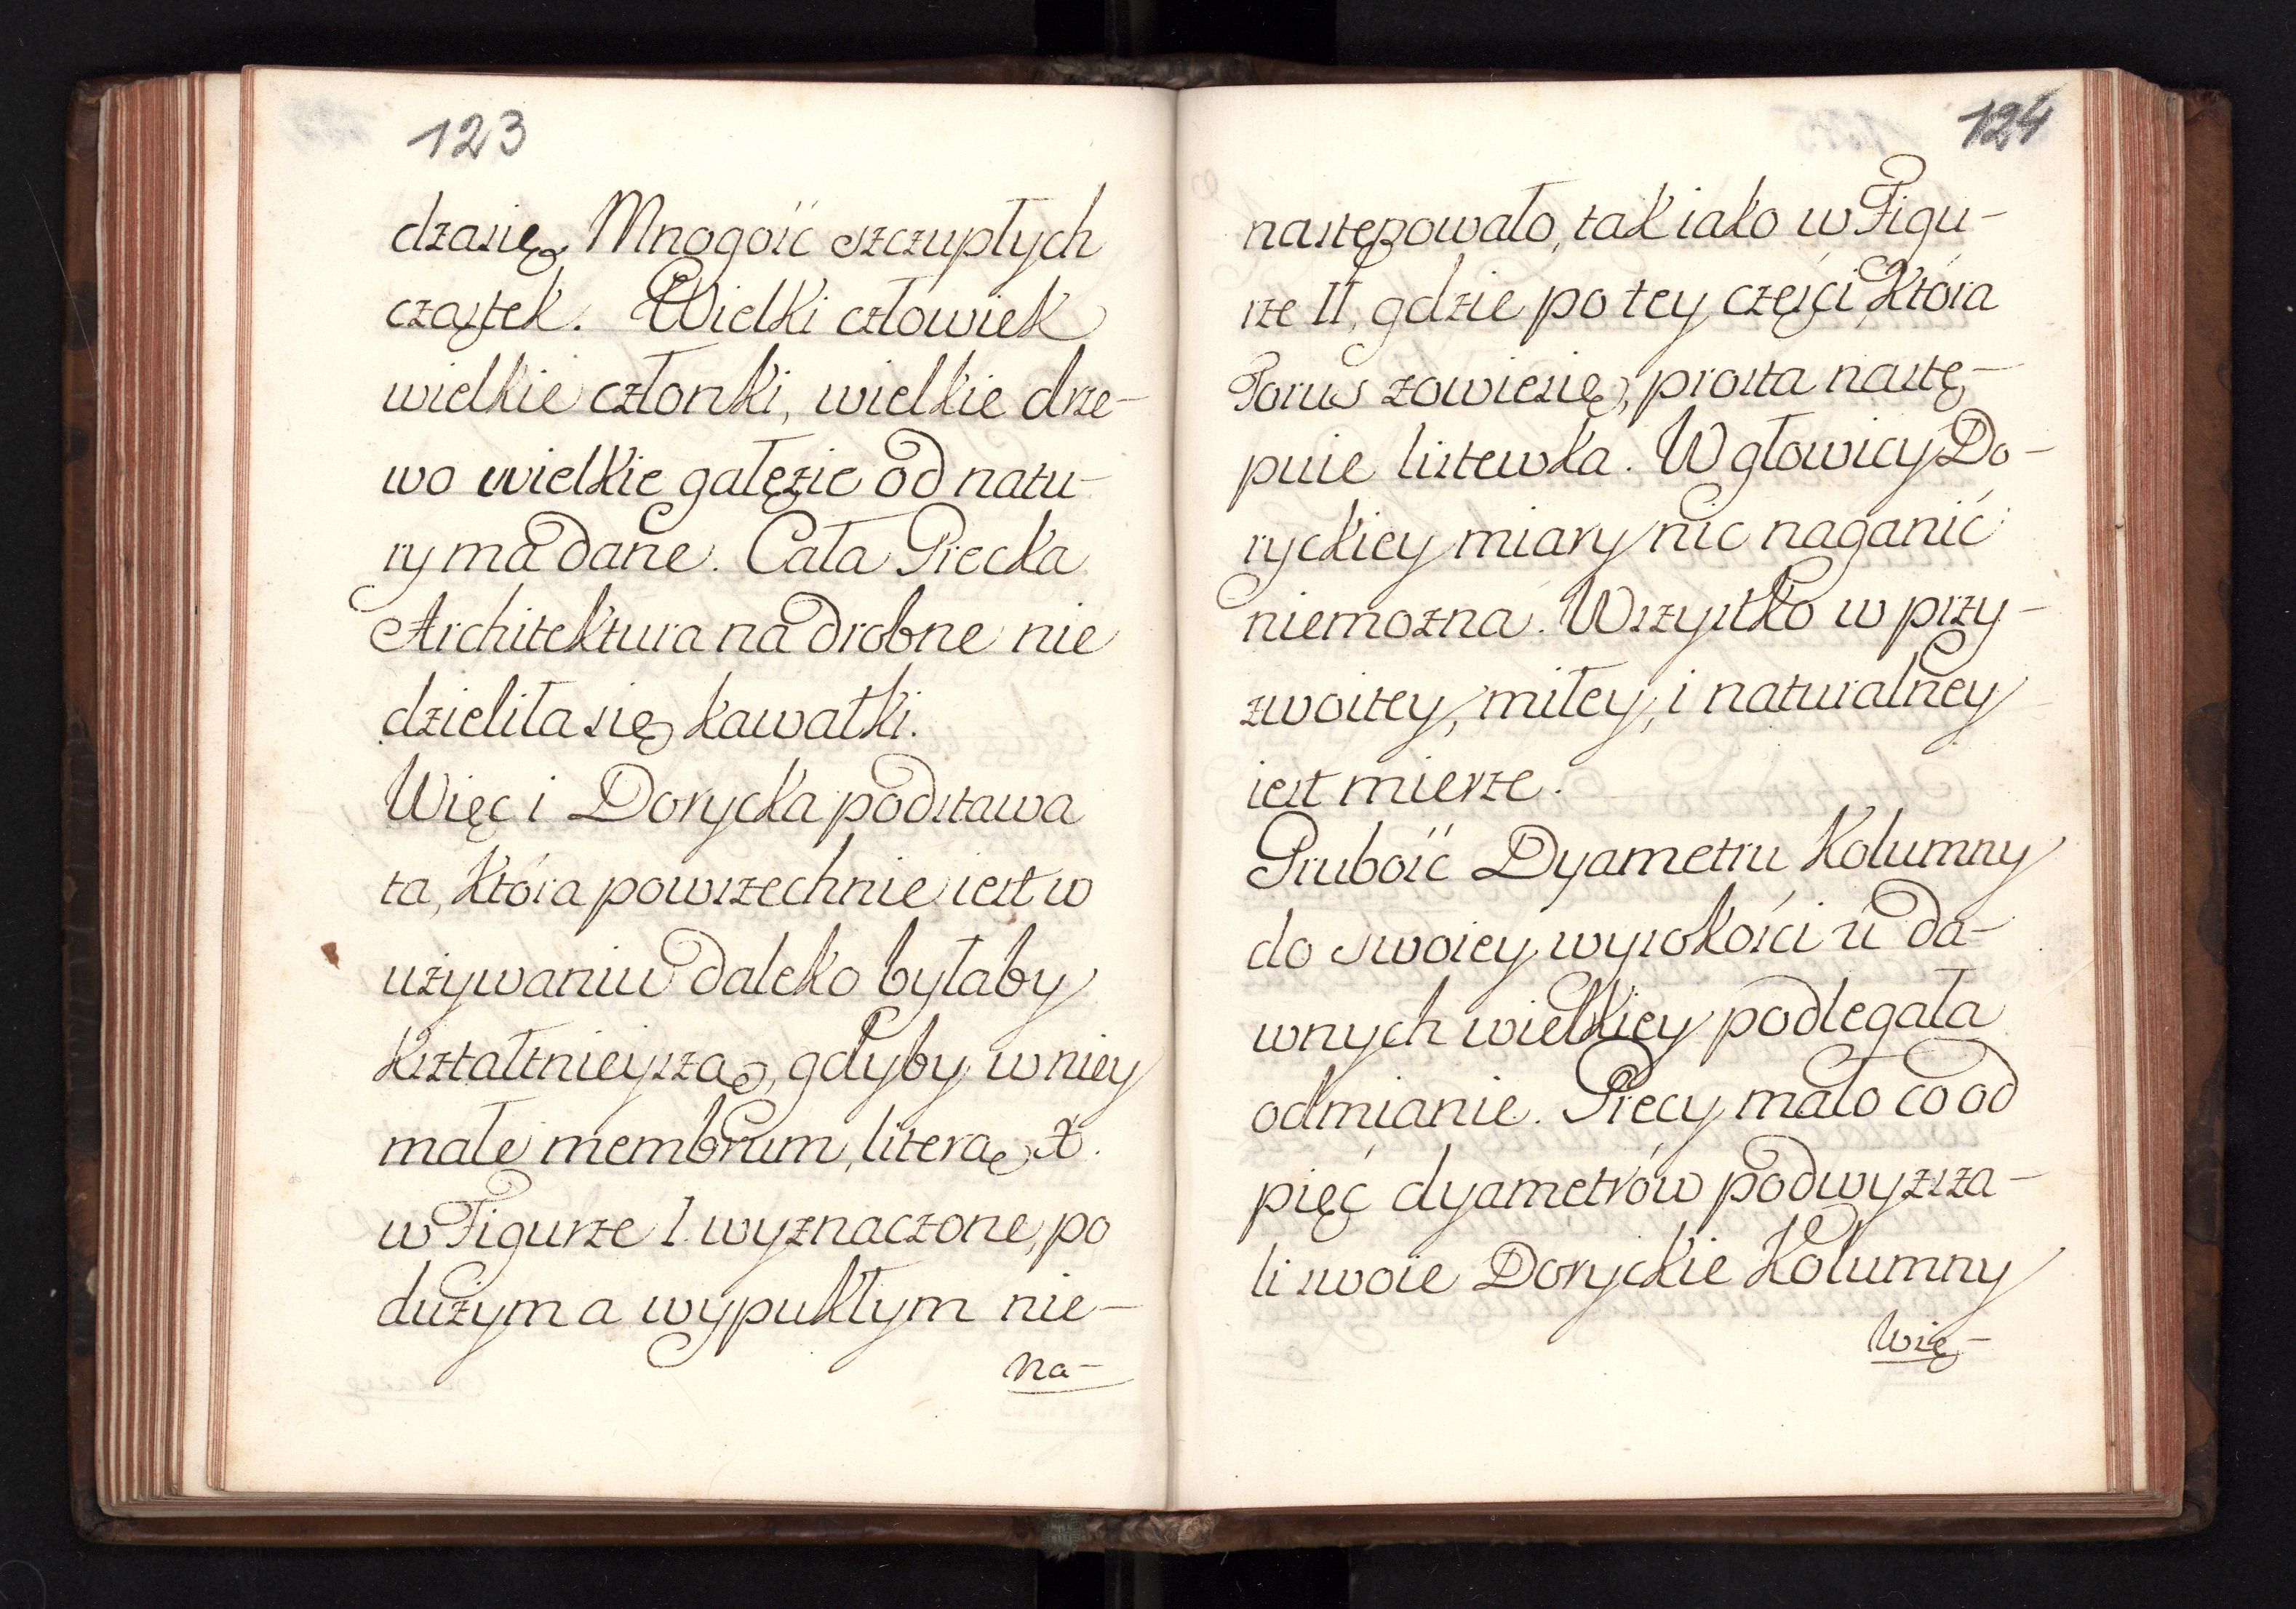 123
dza się Mnogość szczupłych
cząstek. Wielki człowiek
wielkie członki, wielkie drze-
wo wielkie gałęzie od natu-
ry ma dane. Cała Grecka
Architektura na drobne nie
dzieliła się kawałki.
Więc i Dorycka podstawa
ta, która powszechnie iest w
używaniu daleko byłaby
kształtnieyszą, gdyby w niey
małe membrum, literą X.
w Figurze I. wyznaczone, po
dużym a wypukłym nie-
na-
124
następowało, tak iako w Figu-
rze II, gdzie po tey części która
Torus zowie się, prosta nastę-
puie listewka. W głowicy Do-
ryckiey miary nic naganić
niemożna. Wszystko w przy-
zwoitey, miłey, i naturalney
iest mierze.
Grubość Dyametru Kolumny
do swoiey wysokości ú da-
wnych wielkiey podlegała
odmianie. Grecy mało co od
pięć dyametrów podwyższa-
li swoie Doryckie Kolumny
Wię-